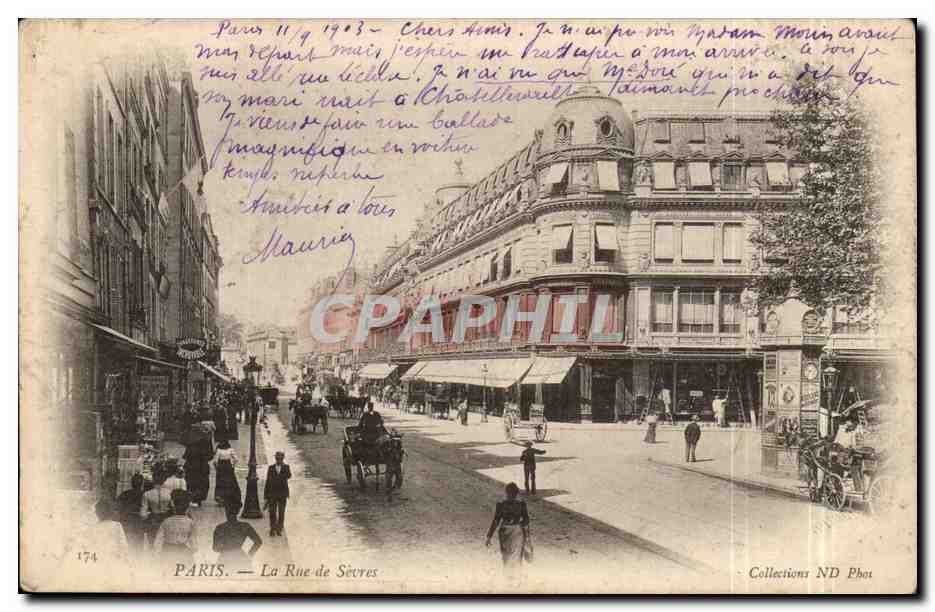 Paris 11/9 1903 - Chers Amis. Je n'ai pu voir Madam Morin avant
mon départ mais j'espère me rattraper à mon arrivée. Ce soir je
suis allé
Je n'ai vu que Mme Doré qui m'a dit que
son mari irait à Chatellerault prochain
Je viens de faire une ballade
magnifique en voiture
temps superbe
Amitiés à tous
Maurice
CPARAMA.COM
174
PARIS. — La Rue de Sèvres
Collections ND Phot